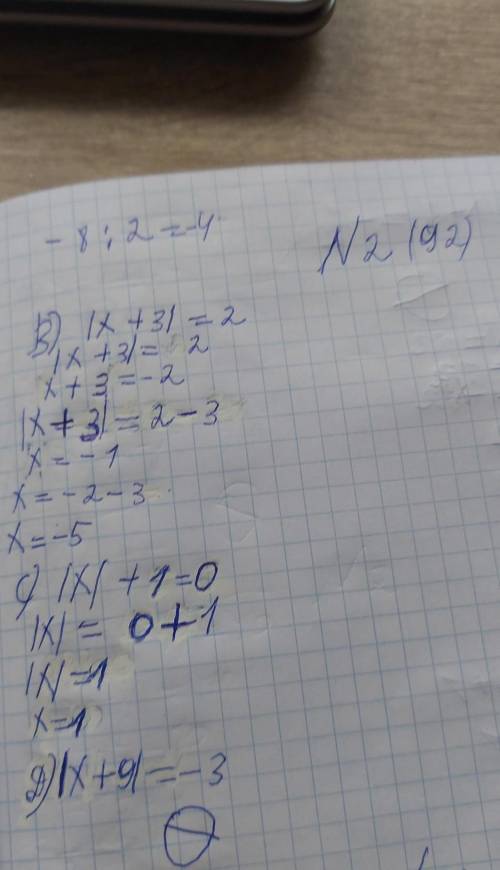 - 8 : 2 = -4
N2 (92)
B) |x + 3| = 2
|x + 3| = 2
x + 3 = -2
|x + 3| = 2 - 3
x = -1
x = -2 - 3
x = -5
c) |x| + 1 = 0
|x| = 0 + 1
|x| = 1
x = 1
|x + 9| = -3